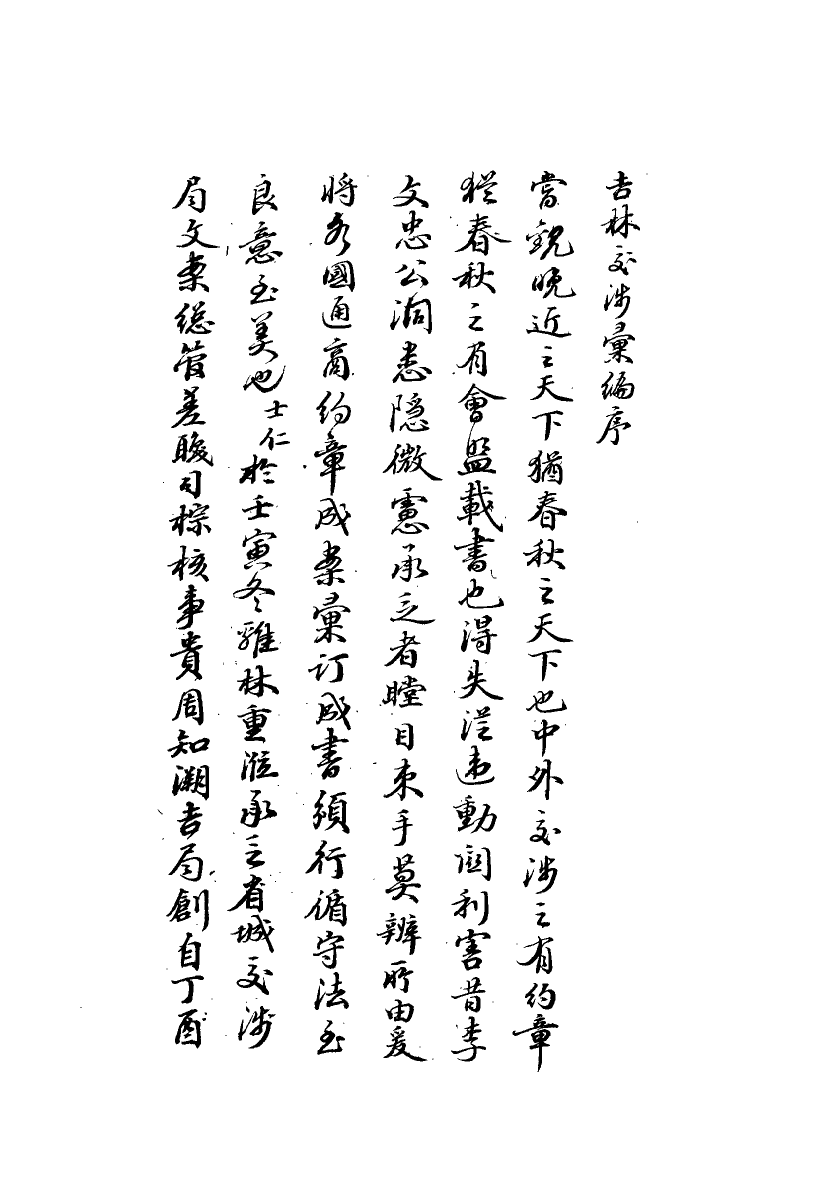 吉林交涉彙編序
嘗觀晚近之天下猶春秋之天下也中外交涉之有約章
猶春秋之有會盟載書也得失從違動關利害昔李
文忠公洞悉隱微慮承乏者瞠目束手莫辨所由爰
將各國通商約章成案彙訂成書頒行循守法至
良意至美也士仁於壬寅冬雞林重涖承乏省城交涉
局文案總管差職司綜核事貴周知溯吉局創自丁酉